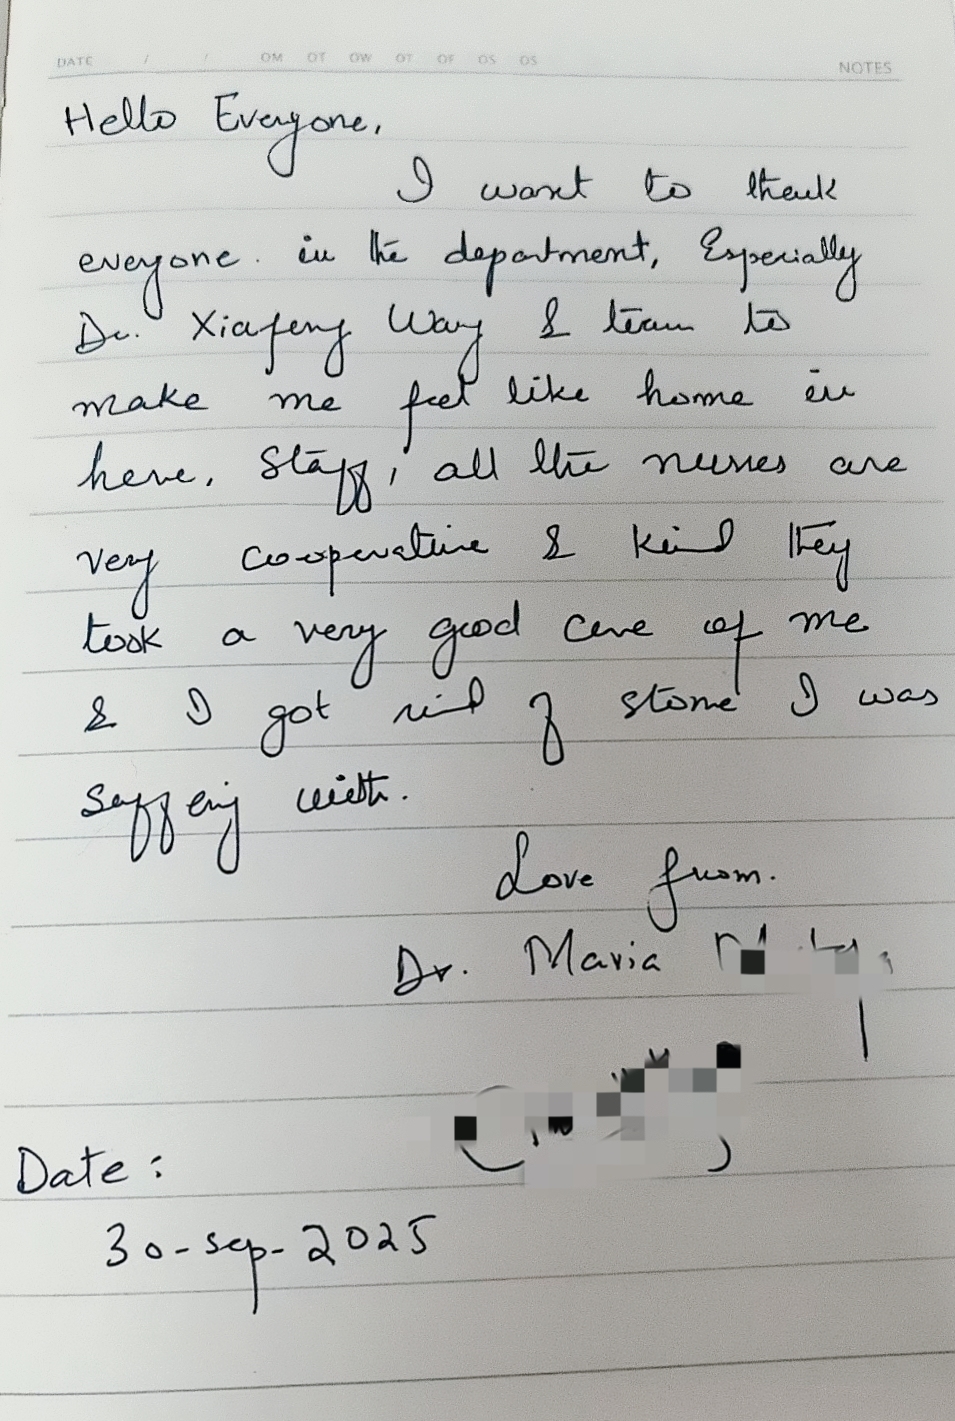 DATE / / OM OT OW OT OF OS OS
NOTES
Hello Everyone,
I want to thank
everyone. in the department, Especially
Dr. Xiafeng Wang & team to
make me feel like home in
here. Staff, all the nurses are
very cooperative & kind they
took a very good care of me
& I got rid of stone I was
suffering with.
Love from.
Dr. Maria
Date:
30-sep-2025